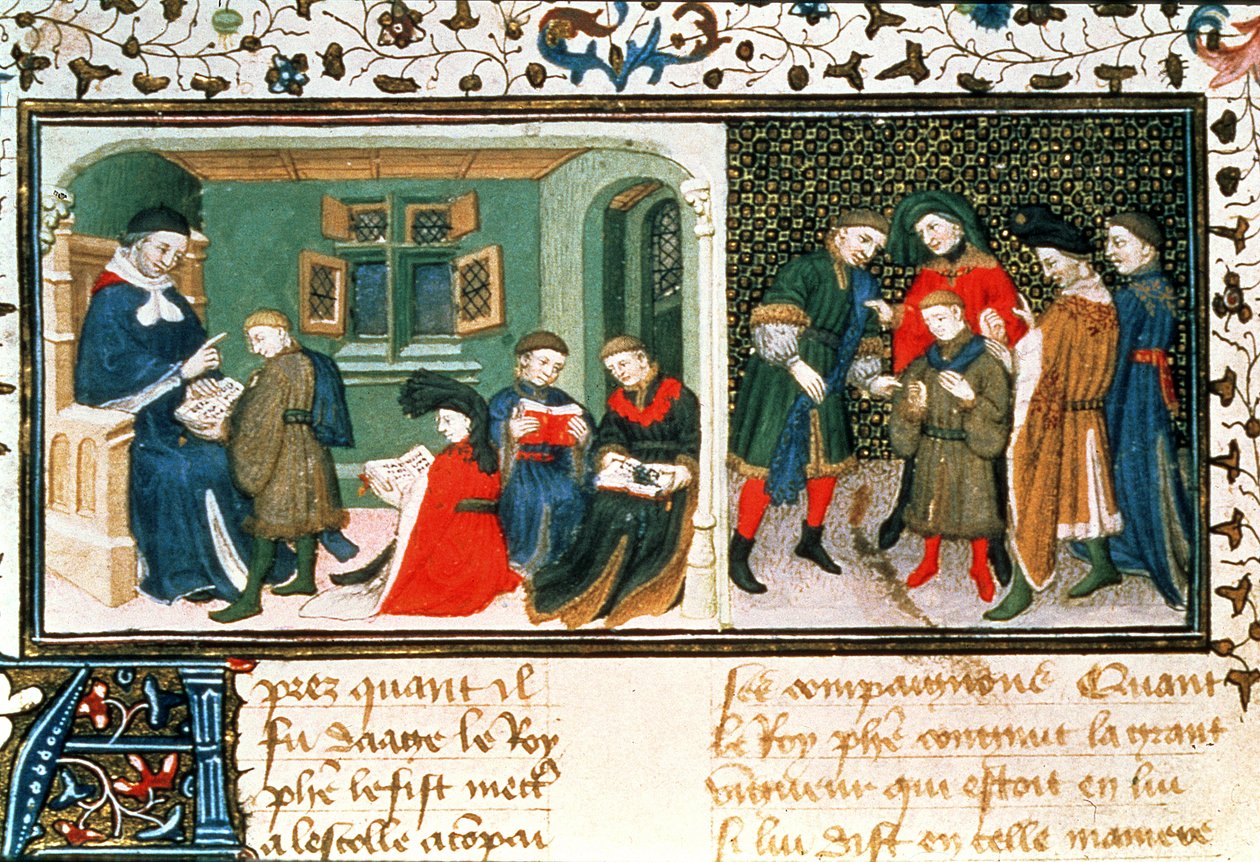 Aprez quant il
fu daage le Roy
phe le fist mectre
a lescolle acompai
ses compaignons Quant
le Roy phe congnut la grant
vigueur qui estoit en lui
si lui dist en celle maniere